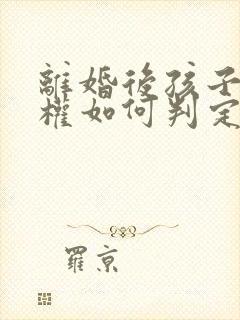 離婚後孩子
權如何判定
羅京